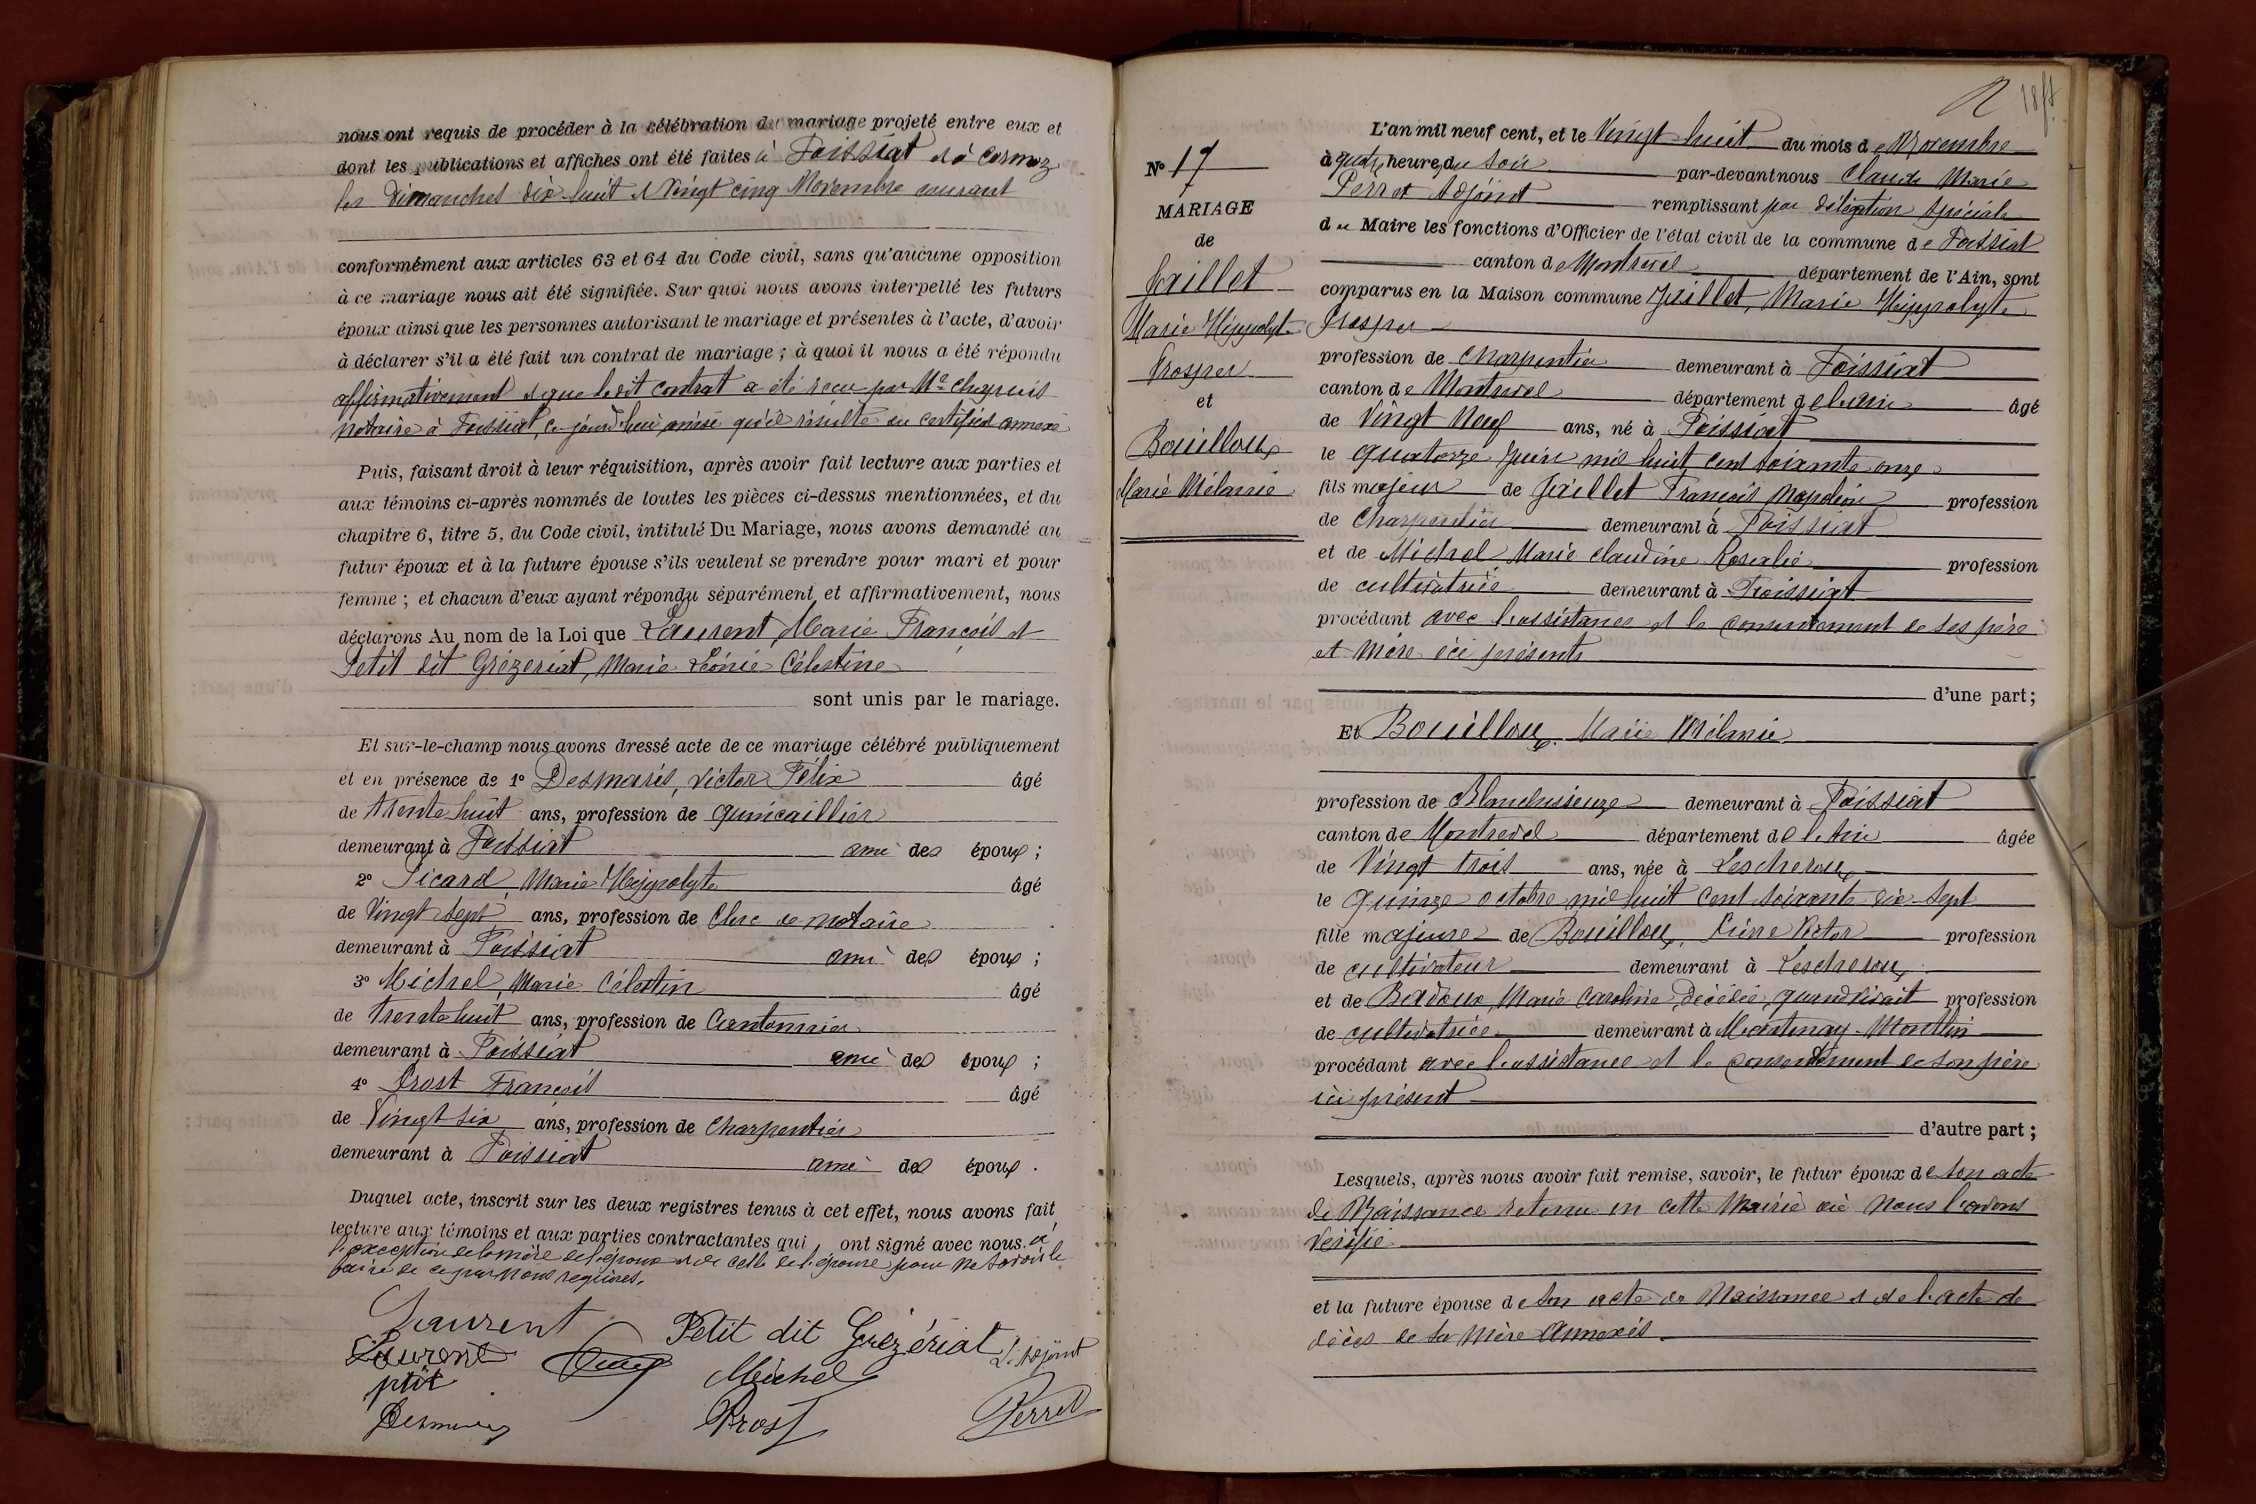 nous ont requis de procéder à la célébration du mariage projeté entre eux et
dont les publications et affiches ont été faites à Foissiat et à Cormoz
les Dimanches dix huit et Vingt cinq Novembre courant
conformément aux articles 63 et 64 du Code civil, sans qu'aucune opposition
à ce mariage nous ait été signifiée. Sur quoi nous avons interpellé les futurs
époux ainsi que les personnes autorisant le mariage et présentes à l'acte, d'avoir
à déclarer s'il a été fait un contrat de mariage ; à quoi il nous a été répondu
affirmativement et que ledit contrat a été reçu par Me Chapuis
notaire à Foissiat, ce jourd'hui, ainsi qu'il résulte du certificat annexé
Puis, faisant droit à leur réquisition, après avoir fait lecture aux parties et
aux témoins ci-après nommés de toutes les pièces ci-dessus mentionnées, et du
chapitre 6, titre 5, du Code civil, intitulé Du Mariage, nous avons demandé au
futur époux et à la future épouse s'ils veulent se prendre pour mari et pour
femme ; et chacun d'eux ayant répondu séparément et affirmativement, nous
déclarons Au nom de la Loi que Laurent, Marie François et
Petit dit Grézeriat, Marie Léonie Célestine
sont unis par le mariage.
Et sur-le-champ nous avons dressé acte de ce mariage célébré publiquement
et en présence de 1° Desmaris, Victor Félix âgé
de trente huit ans, profession de quincaillier
demeurant à Foissiat ami des époux ;
2° Picard, Marie Hippolyte âgé
de Vingt sept ans, profession de Clerc de notaire
demeurant à Foissiat ami des époux ;
3° Michel, Marie Célestin âgé
de trente huit ans, profession de Cantonnier
demeurant à Foissiat ami des époux ;
4° Prost François âgé
de Vingt six ans, profession de Charpentier
demeurant à Foissiat ami des époux .
Duquel acte, inscrit sur les deux registres tenus à cet effet, nous avons fait
lecture aux témoins et aux parties contractantes qui ont signé avec nous à
l'exception de la mère de l'époux et de celle de l'épouse pour ne savoir le
faire de ce par nous requises.
Laurent Petit dit Grézériat
Laurent Michel L'adjoint
ptit
Desmaris Prost Perret
N° 17
MARIAGE
de
Jaillet
Marie Hippolyte
Prosper
et
Bouilloux
Marie Mélanie
L'an mil neuf cent, et le Vingt huit du mois de Novembre
à quatre heure du soir par-devant nous Claude Marie
Perret Adjoint remplissant par délégation spéciale
du Maire les fonctions d'Officier de l'état civil de la commune de Foissiat
canton de Montrevel département de l'Ain, sont
comparus en la Maison commune Jaillet, Marie Hippolyte
Prosper
profession de Charpentier demeurant à Foissiat
canton de Montrevel département de l'Ain âgé
de Vingt Neuf ans, né à Foissiat
le quatorze Juin mil huit cent soixante onze
fils majeur de Jaillet François Napoléon profession
de Charpentier demeurant à Foissiat
et de Michel Marie Claudine Rosalie profession
de cultivatrice demeurant à Foissiat
procédant avec l'assistance et le consentement de ses père
et mère ici présents
d'une part ;
Et Bouilloux Marie Mélanie
profession de Blanchisseuze demeurant à Foissiat
canton de Montrevel département de l'Ain âgée
de Vingt trois ans, née à Lescheroux
le quinze octobre mil huit cent soixante dix-sept
fille majeure de Bouilloux, Victor profession
de cultivateur demeurant à Lescheroux
et de Badoux, Marie Caroline, Décédée, quand vivait profession
de cultivatrice demeurant à Mantenay-Montlin
procédant avec l'assistance et le consentement de son père
ici présent
d'autre part ;
Lesquels, après nous avoir fait remise, savoir, le futur époux de son acte
de Naissance retenu en cette Mairie où nous l'avons
vérifié
et la future épouse de son acte de Naissance et de l'acte de
décès de sa mère annexés.